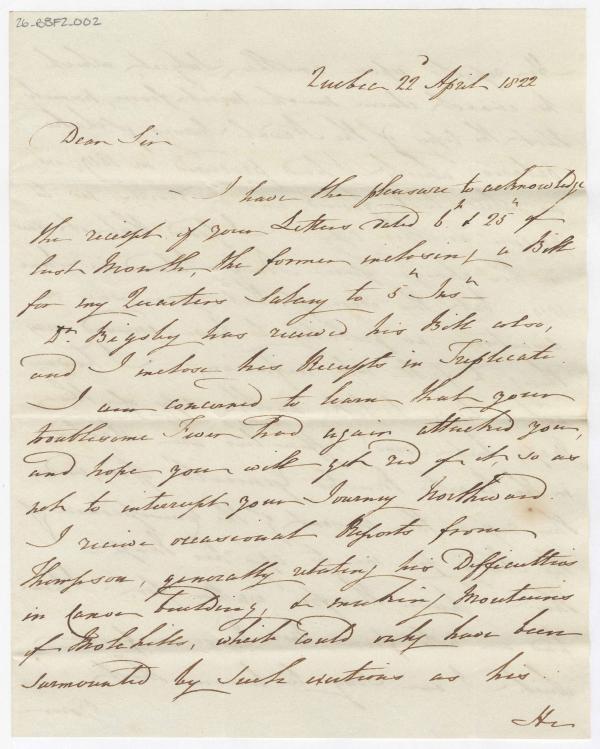 26-BSF2-002
Quebec 22d April 1822
Dear Sir
I have the pleasure to acknowledge
the receipt of your Letters dated 6th & 25th of
last Month, the former inclosing a Bill
for my Quarters Salary to 5th Inst
Dr. Bigsby has recieved his Bill also,
and I inclose his Receipts in Triplicate.
I am concerned to learn that your
troublesome Fever had again attacked you,
and hope you will get rid of it, so as
not to interrupt your Journey Northward.
I recieve occasional Reports from
Thompson, generally stating his Difficulties
in Canoe building, & making Mountains
of Molehills, which could only have been
surmounted by such exertions as his.
He